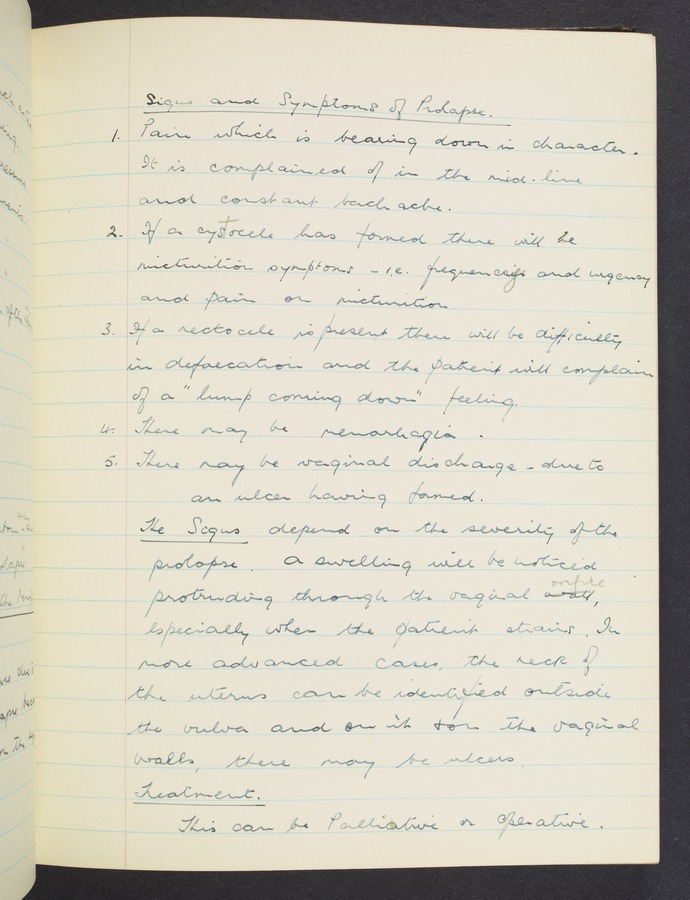 Signs and Symptoms of Prolapse.
1. Pain which is bearing down in character.
It is complained of in the mid-line
and constant back ache.
2. If a cystocele has formed there will be
micturition symptoms - i.e. frequency and urgency
and pain on micturition
3. If a rectocele is present there will be difficulty
in defaecation and the patient will complain
of a "lump coming down" feeling.
4. There may be menorrhagia.
5. There may be vaginal discharge - due to
an ulcer having formed.
The Signs depend on the severity of the
prolapse. A swelling will be noticed
orifice
protruding through the vaginal wall,
especially when the patient strains. In
more advanced cases, the neck of
the uterus can be identified outside
the vulva and on it & on the vaginal
walls, there may be ulcers.
Treatment.
This can be Palliative or Operative.